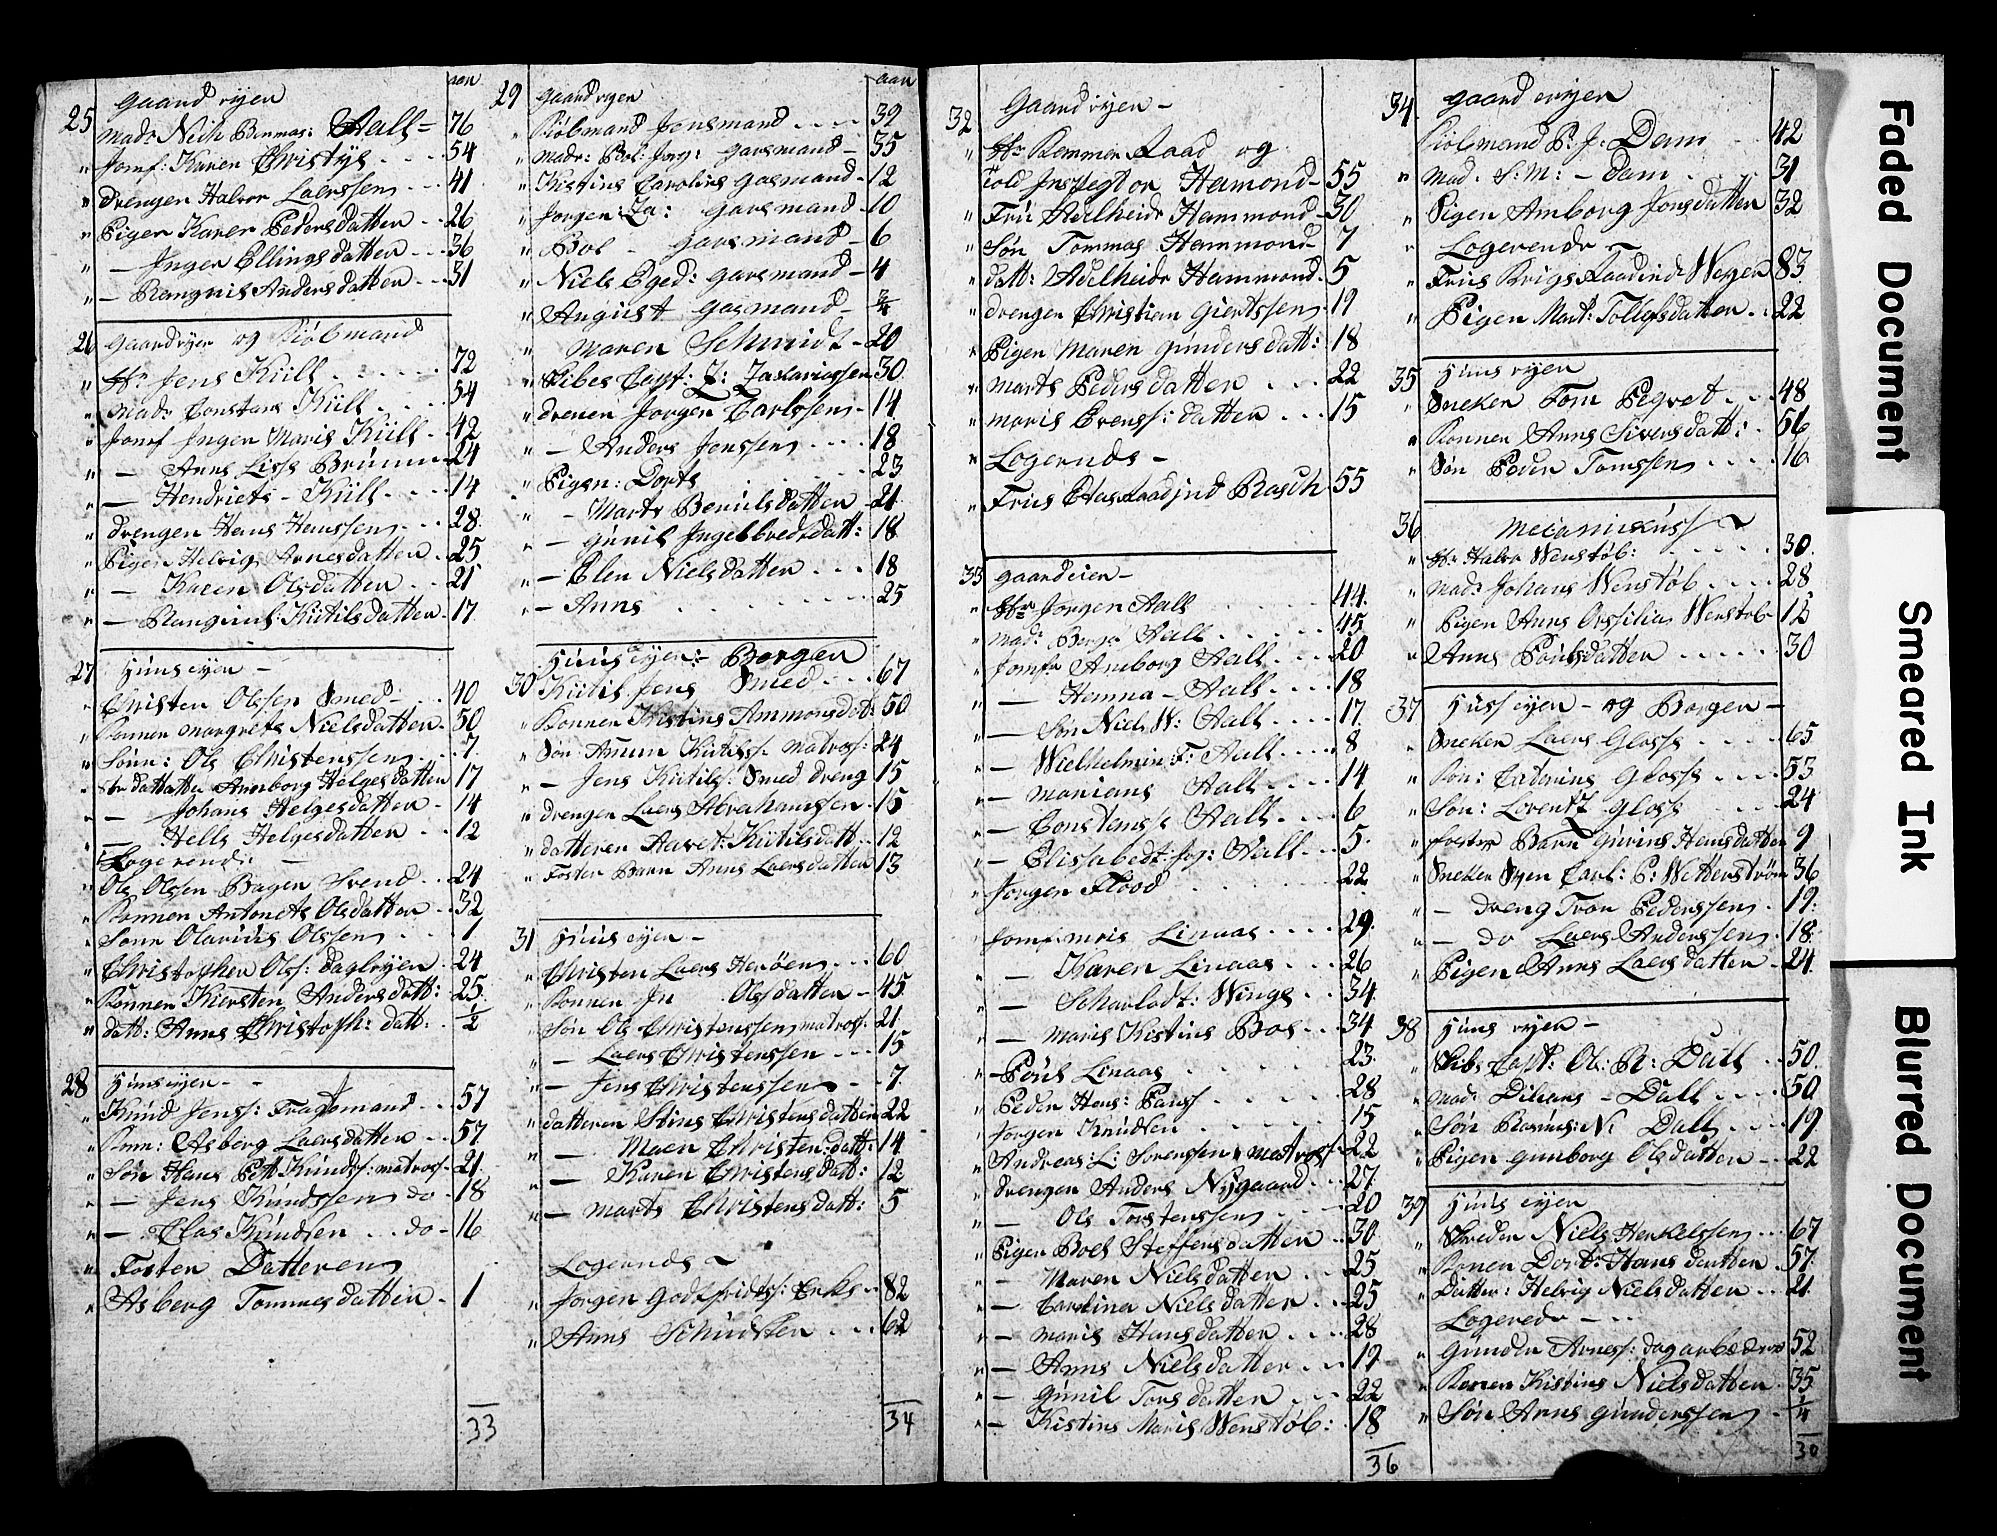 aar
25 gaard eyer
Mad: Nich Benmas: Aall = 76
" Jomf: Karen Christys ... 54
" drengen Halvor Laerssen ... 41
" Pigen Karen Pedersdatter .. 26
" — Inger Ellingsdatter ... 36
" — Rangnil Andersdatter ... 31
26 gaardeyer og Kiøbmand
" Hr Jens Kiill ..... 72
" Mad: Constans Kiill .... 54
" Jomf Inger Maris Kiill . 42
" — Anne Liss Brünn 24
" — Hendriets - Kiill .... 14
" drengen Hans Hanssen ... 28
" Pigen Helvig Arnesdatter . 25
" — Karen Olsdatter .. 21
" — Rangnil: Kittilsdatter . 17
27 Huuseyer —
" Christen Olssen Smed .. 40
" Konnen Margrets Nielsdatter . 50
" Sønn: Ols Christenssen .. 7
" datter Amborg Helgesdatter 17
" — Johans Helgesdatter - 14
" — Helle Helgesdatter .. 12
Logerende —
" Ols Olssen Bager Svend .. 24
" Konnen Antonets Olsdatter .. 32
" Sønn Olavius Olssen ... 1
" Christopher Ols: dagleyer . 24
" Konnen Kiersten Andersdatt: . 25
" datt: Anne Christoph: datt: . 1/2
28 Huuseyer - -
" Knud Jenss: Fragtmand .. 57
" Kon: Asberg Laersdatter .. 57
" Søn Hans Pett Knuds: matros - 21
" — Jens Knudssen do - 18
" — Clas Knudsen ... do - 16
" Foster Datteren
" Asberg Tommesdatter - 1
33
aar
29 gaard eyer
" Kiøbmand Jonsmand .... 39
" Madr: Bol: Jørg: Garsmand — 35
" Kistins Carolins Gasmand - 12
" Jørgen: Za: Garsmand - 10
" Bol - Garsmand - 6
" Niels Eged: Garsmand - 4
" August Gasmand - 3/4
" Maren Schmidt - 20
" Skibes Capt: Z: Zakariassen 30
" drenen Jørgen Carlssen - 14
" — Anders Jenssen .... 18
Pigen: Dorte ... 23
" — Marte Benilsdatter - 21
" — Gunil Ingelbredsdatt: - 18
" — Elen Nielsdatter ... 18
" — Anne ........ 25
Huuseyer: Borger
30 Kittil Jens Smed ... 67
" Konnen Kistins Ammonsdat: 50
" Søn Amun Kittilss: matros: 24
" — Jens Kittils: Smed dreng 15
" drengen Laers Abrahamssen . 15
" datteren Aaret: Kittilsdatt .. 12
" Foster Barn Anne Laersdatter 13
31 Huuseyer —
" Christen Laers Herøen ... 60
" Konnen In Olsdatter — 45
" Søn Ols Christenssen matros: 21
" — Laers Christenssen ... 15
" — Jens Christenssen - . 7
" datteren Stins Christensdatter 22
" — Maen Christen:datt: 14
" — Karen Christensdatt: 12
" — Marte Christensdatt: 5
Logernds ~
" Jørgen Godtfridts: Erks .. 82
" Anne Schudsten ... 62
34
32 Gaard eyer —
" Hr Kemmer Raad og
Told Inspegtor Hamond - 55
" Frü Adelheide Hammond - 30
" Søn Tommas Hammond - 7
" datt: Adelheide Hammond . 5
" drengen Christian Giertssen . 19
" Pigen Maren Gundersdatt: 18
" Marte Pedersdatter ... 22
" Maris Evenss: datter ... 15
" Logernds —
" Früe Etasraadind Rasch 55
33 gaardeier —
" Hr Jørgen Aall ... 44
" Mad: Bergs Aall .... 45
" Jomfr Amborg Aall ... 20
" — Hanna - Aall .... 18
" — Søn Niels W: Aall ... 17
" — Wielhelmin F: Aall ... 8
" — Marians Aall ... 14
" — Constanse Aall ... 6
" — Elisabedt: Jør: Aall .. 5
" Jørgen Flood ...... 22
" Jomf: Maris Linaas .... 29
" — Karen Linaas ... 26
" — Scharlodt: Winge .. 34
" — Maris Kistins Boe ... 34
" — Pouls Linaas ..... 23
" Peder Hans: Panss .... 28
" Jørgen Knudsen ...... 15
" Andreas: L: Sørenssen matros - 22
" drengen Anders Nygaard ... 27
" — Ols Torstenssen .... 20
" Pigen Boel Steffensdatter .. 30
" — Maren Nielsdatter ... 25
" — Carolina Nielsdatter .. 25
" — Maris Hansdatter .... 28
" — Anne Nielsdatter ... 19
" — Gunil Torsdatter ... 22
" — Kistins Maris Wenstøb: 18
36
34 gaard eeyer
Kiøbmand P: J: Dam .. 42
" Mad: S: M: — Dam .. 31
" Pigen Amborg Jonsdatter 32
" Logerende ~
" Früe Krigs Raadinde Weyer 83
" Pigen Mart: Tollefsdatter .. 22
35 Huus eyer
" Sneker Tom Pegret ... 48
" Konnen Anne Siversdatt: . 56
" Søn Peder Tomssen .... 16
36 Mecanikuss ~
" Hr Halvo Wenstøb: .... 30
" Mad: Johans Wenstøb .... 28
" Pigen Anne Orssilia Wenstøb 12
" Anne Poulsdatter ..... 30
37 Huuss eyer — og Borger —
" Sneker Laers Gloss .... 65
" Kon: Caterins Gloss .... 53
" Søn: Lorentz Gloss .... 24
" foster Barn Gurins Hansdatter 9
" Sneker Svein Carl: P: Wetterstrøm 36
" — dreng Tron Pederssen . 19
" — do Laers Anderssen . 18
" Pigen Anne Laersdatter — 24
38 Huus eyer —
" Skibs Capt: Ol: R: Dall ... 50
" Mad: Dilians - Dall .... 50
" Søn Rasmus: N: Dall .... 19
" Pigen Gunborg Olsdatter — 22
39 Huus eyer
" Skreder Niels Henkelssen .. 67
" Konen Dort: Hansdatter . 57
" Datter: Helvig Nielsdatter .. 21
Logerede — ..
" Gunder Arness: dagarbeder 52
" Konen Kistins Nielsdatter . 35
" Søn Arns Gunderssen . 1/4
30
Faded Document
Smeared Ink
Blurred Document